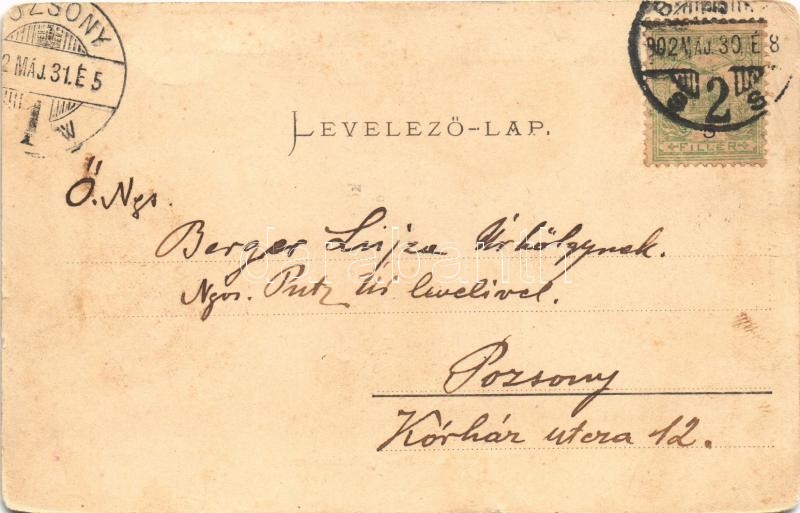 POZSONY
2 MÁJ. 31. É 5
1
W
902 MÁJ. 30. É 8
2
FILLÉR
LEVELEZŐ-LAP.
Ő. Ngs.
Berger Lujza Úrhölgynek.
darabanth
Ngos. Putz úr levelivel.
Pozsony
Kórház utcza 12.